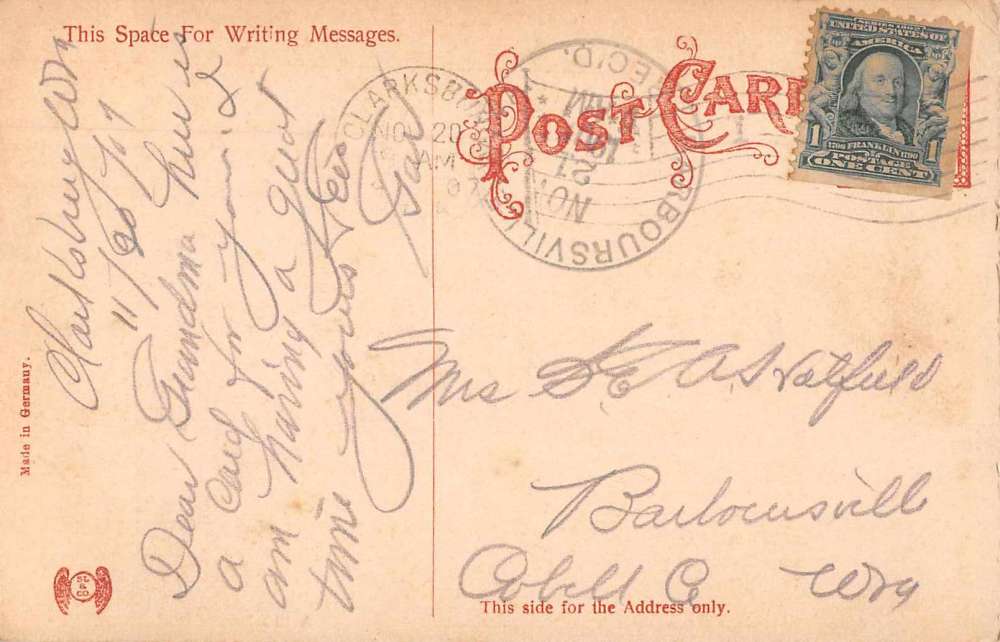 This Space For Writing Messages.
POST CARD
CLARKSBU
NOV 20
AM
07
REC'D.
NOV
21
BOURSVILL
SERIES 1902
UNITED STATES OF
AMERICA
1706 FRANKLIN 1790
POSTAGE
1 ONE CENT 1
Clarksburg WVa
11/20/07
Dear Grandma here is
a Card for you and I
am having a good
time yours
Mrs A Hatfield
Barboursville
Cabell Co WVa
This side for the Address only.
Made in Germany.
SL
&
CO